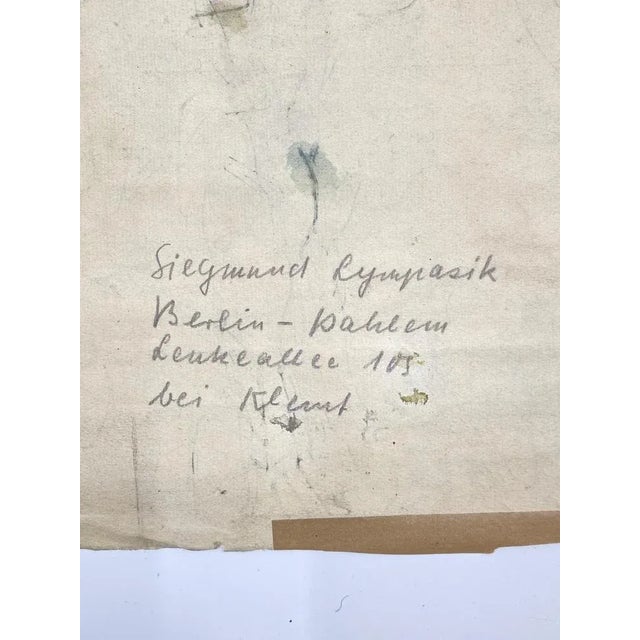 Siegmund Lympasik
Berlin - Dahlem
Lentzeallee 105
bei Klemt